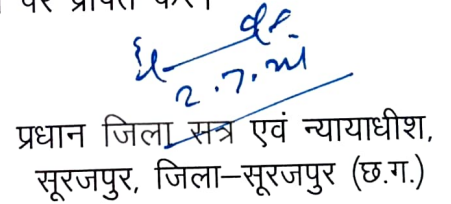 पर प्राप्त करें
2.7.21
प्रधान जिला सत्र एवं न्यायाधीश,
सूरजपुर, जिला–सूरजपुर (छ.ग.)